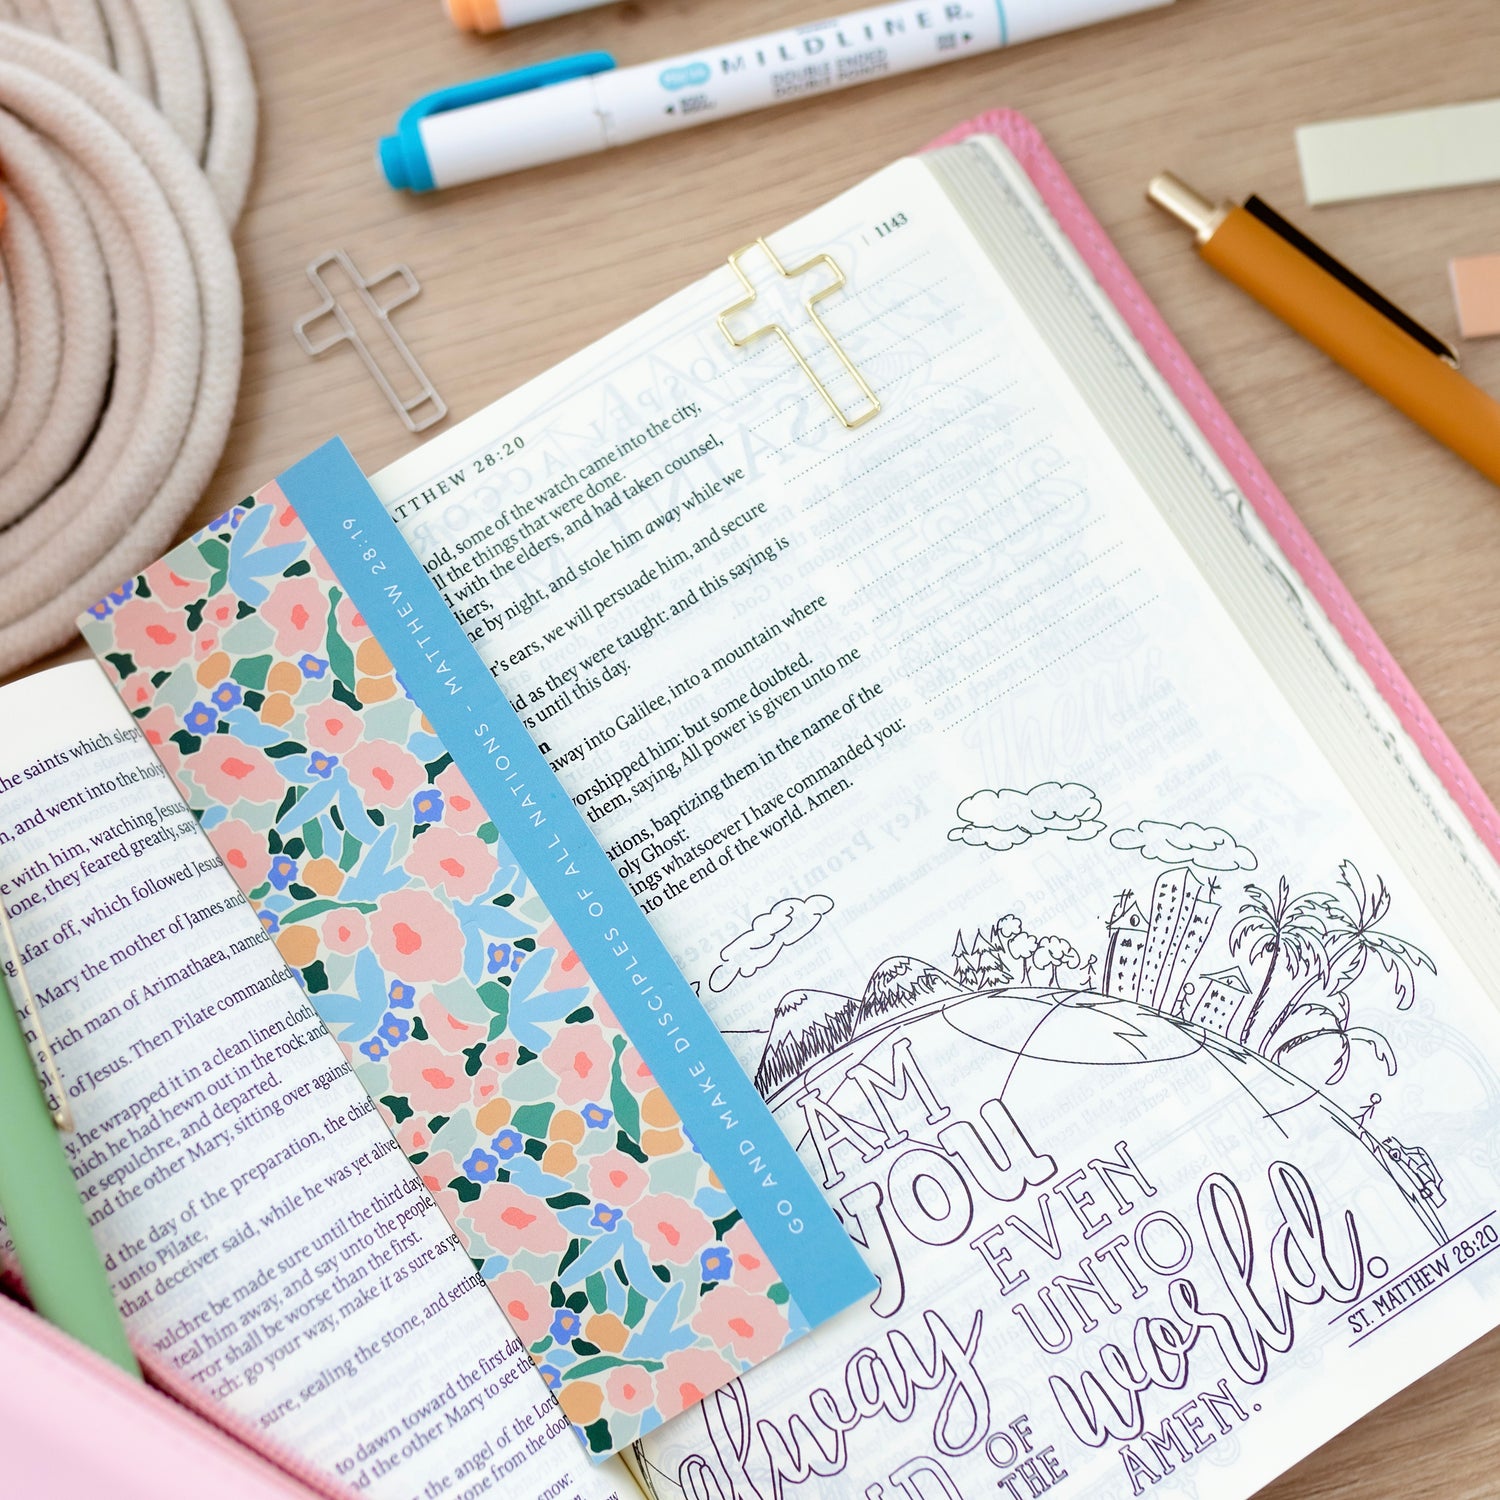 MILDLINER.
DOUBLE ENDED
DOUBLE POINTS
1143
ATTHEW 28:20
hold, some of the watch came into the city,
ll the things that were done.
d with the elders, and had taken counsel,
liers,
me by night, and stole him away while we
r's ears, we will persuade him, and secure
id as they were taught: and this saying is
ys until this day.
away into Galilee, into a mountain where
worshipped him: but some doubted.
them, saying, All power is given unto me
ations, baptizing them in the name of the
oly Ghost:
ings whatsoever I have commanded you:
nto the end of the world. Amen.
GO AND MAKE DISCIPLES OF ALL NATIONS - MATTHEW 28:19
he saints which slept
n, and went into the holy
e with him, watching Jesus,
one, they feared greatly, say-
afar off, which followed Jesus
Mary the mother of James and
rich man of Arimathaea, named
d of Jesus. Then Pilate commanded
y, he wrapped it in a clean linen cloth,
hich he had hewn out in the rock: and
he sepulchre, and departed.
and the other Mary, sitting over against
d the day of the preparation, the chief
unto Pilate,
that deceiver said, while he was yet alive,
pulchre be made sure until the third day,
teal him away, and say unto the people,
rror shall be worse than the first.
tch: go your way, make it as sure as ye
sure, sealing the stone, and setting
to dawn toward the first day
nd the other Mary to see the
the angel of the Lord
stone from the door
snow:
AM
YOU
alway
EVEN
UNTO
OF
THE
world.
AMEN.
ST. MATTHEW 28:20